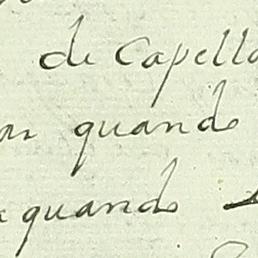 de Capella
quando
quando